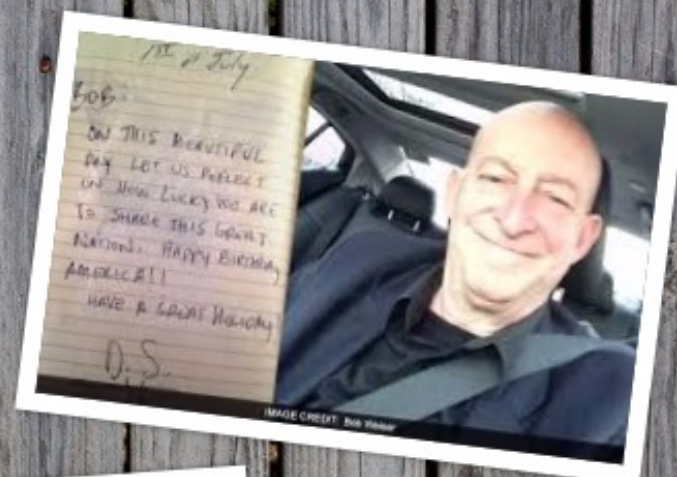 1st of July
BOB
ON THIS BEAUTIFUL
DAY LET US REFLECT
ON HOW LUCKY WE ARE
TO SHARE THIS GREAT
NATION. HAPPY BIRTHDAY
AMERICA!!
HAVE A GREAT HOLIDAY
D. S.
IMAGE CREDIT: Bob Weiser